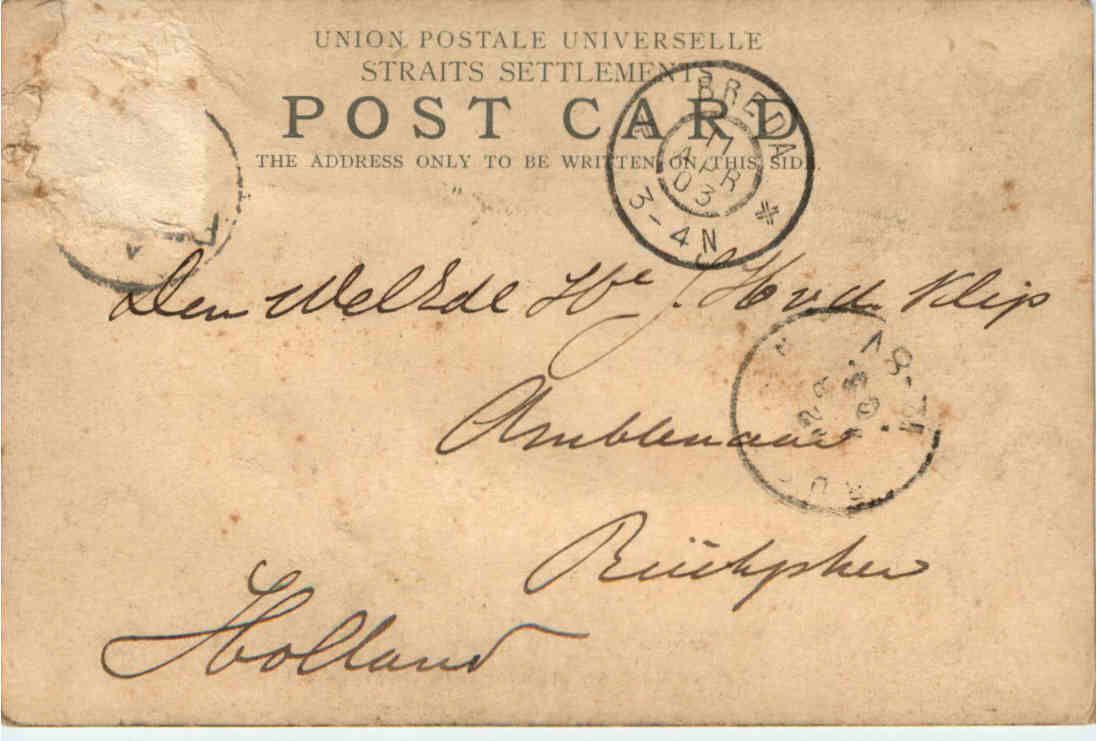 UNION POSTALE UNIVERSELLE
STRAITS SETTLEMENTS
POST CARD
THE ADDRESS ONLY TO BE WRITTEN ON THIS SIDE.
BREDA
17
APR
03
3-4N
Den WelEdel J. H. vd Klip
Ambtenaar
Holland